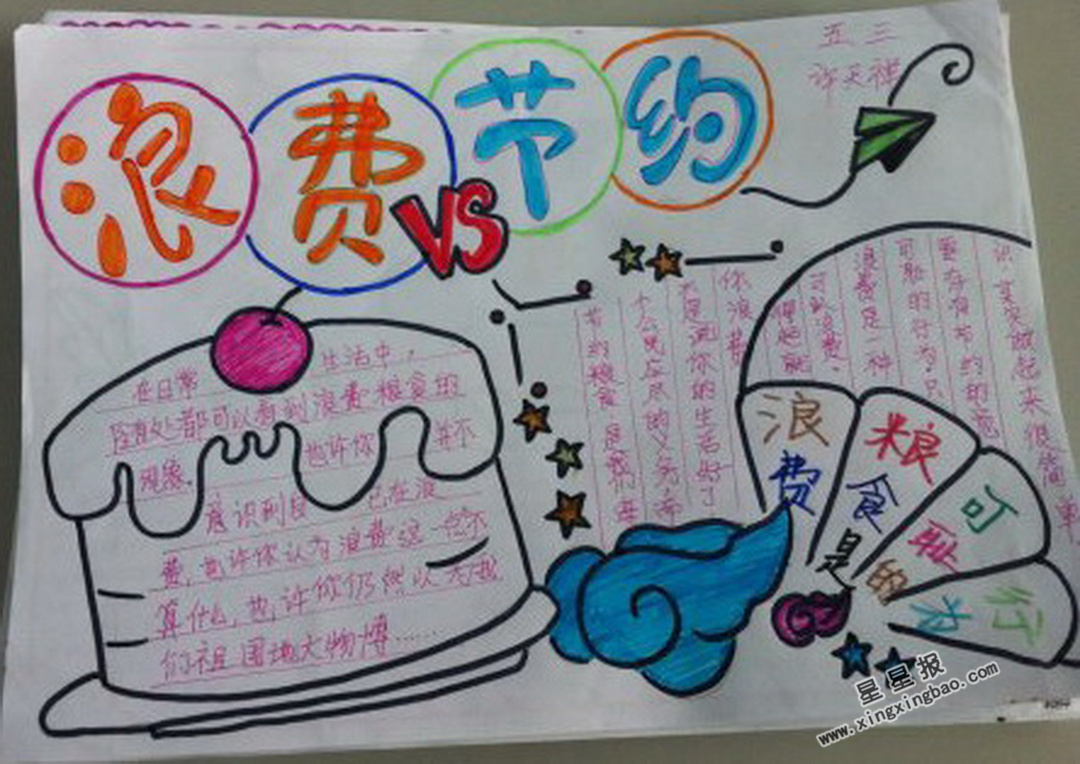 浪费VS节约
五三
许天祥
在日常生活中，
随处都可以看到浪费粮食的
现象。也许你并不
意识到自己在浪
费，也许你认为浪费这一点不
算什么，也许你仍然以为我
们祖国地大物博……
节约粮食是我们每
个公民应尽的义务，而
不是说你的生活好了
你浪费
得起就
可以浪费。
浪费是一种
可耻的行为，只
要存有节约的意
识，其实做起来很简单
浪费
粮食
是
可耻
的
行为
星星报
www.xingxingbao.com